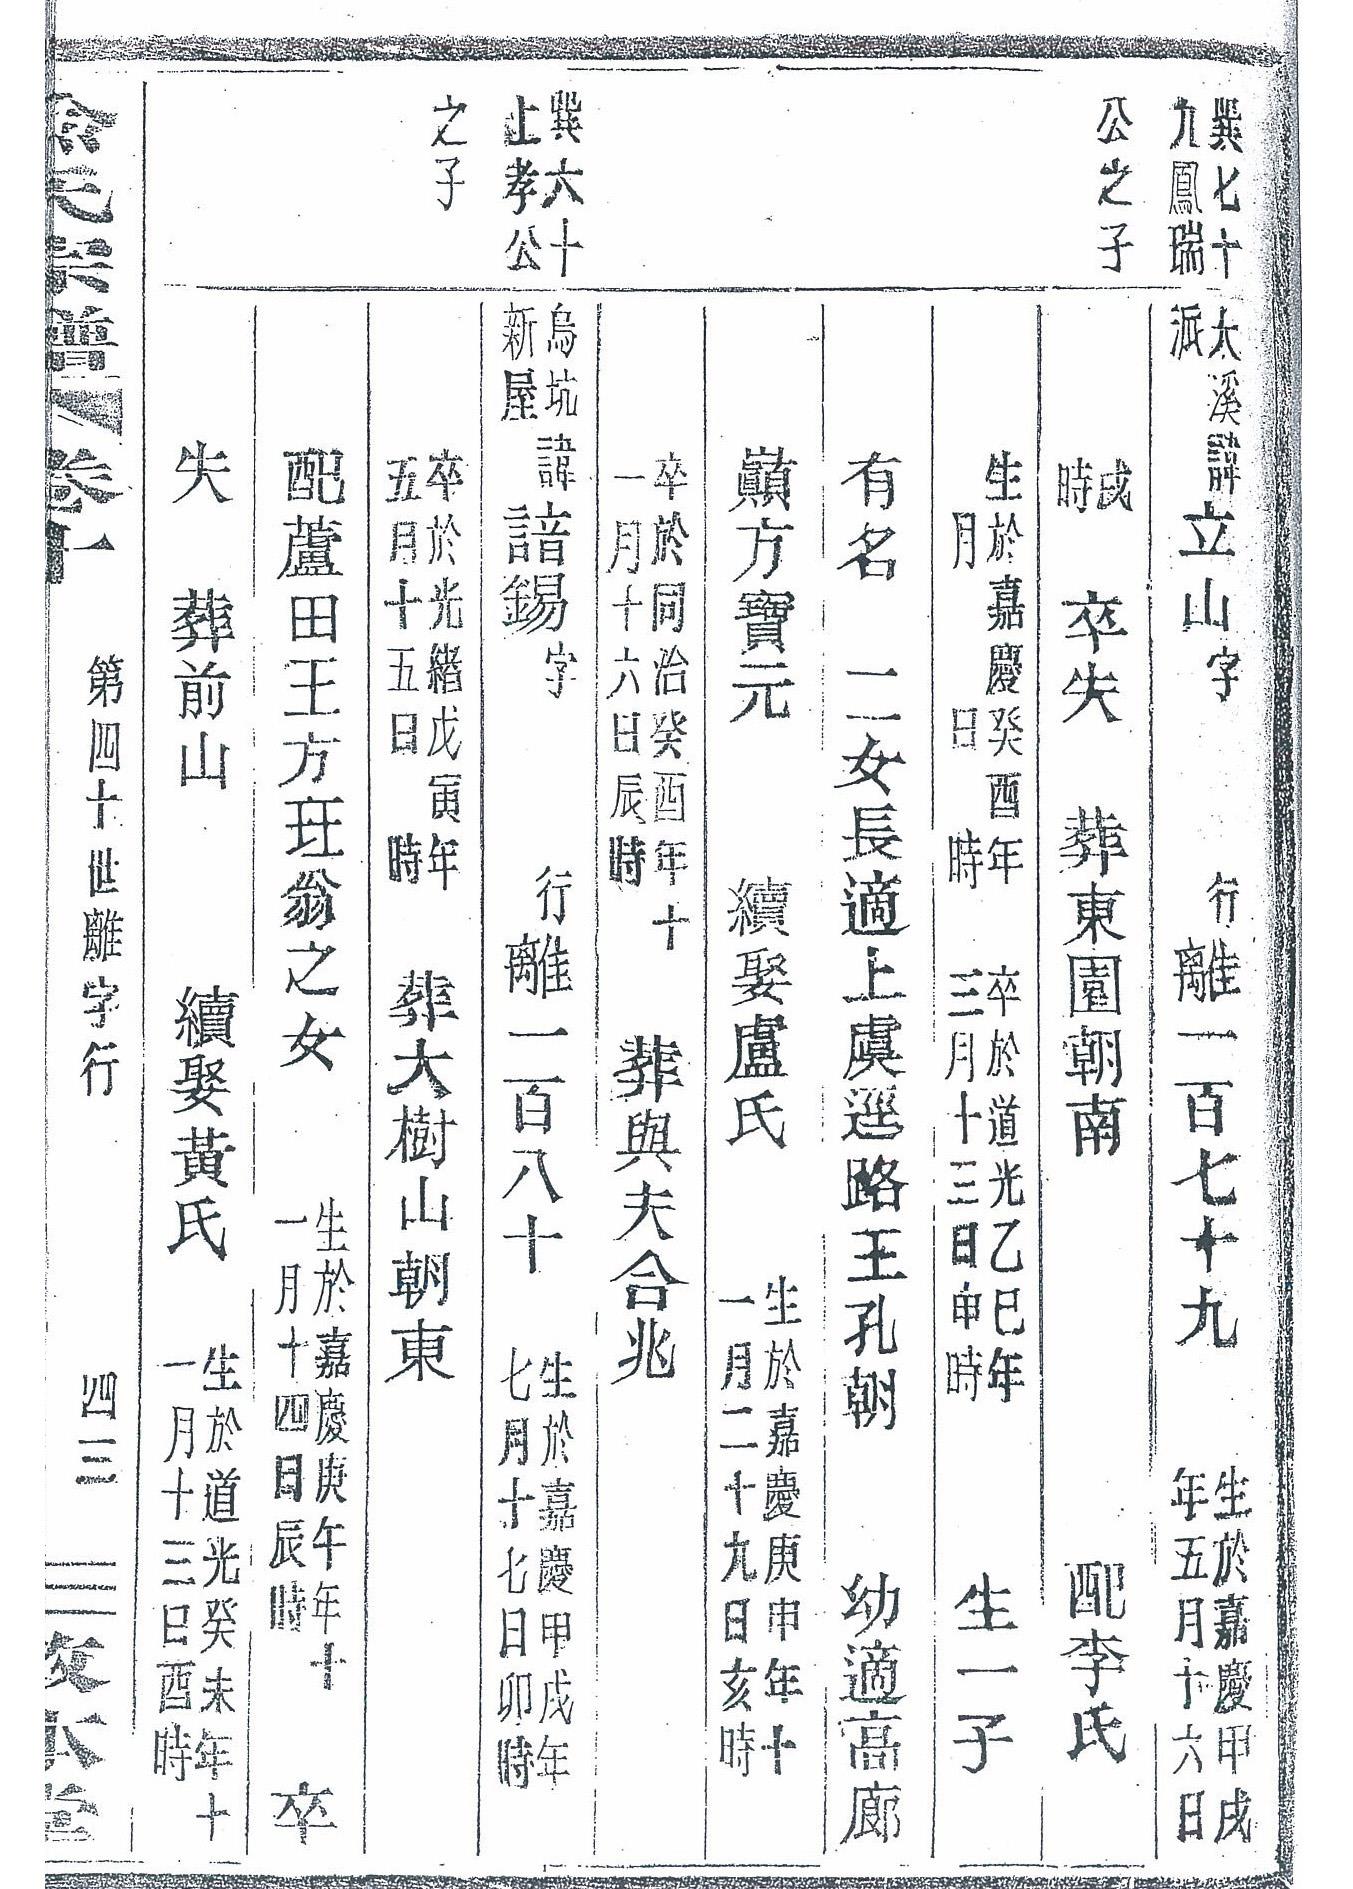 巽七十
九鳳瑞
公之子
太溪諱立山字　行離一百七十九　生於嘉慶甲戌
派　年五月十六日
戌
時　卒失　葬東園朝南　配李氏
生於嘉慶癸酉年　卒於道光乙巳年
月　日　時　三月十三日申時　生一子
有名　二女長適上虞逕路王孔朝　幼適高廊
巔方寶元　續娶盧氏　生於嘉慶庚申年十
一月二十九日亥時
卒於同治癸酉年十
一月十六日辰時　葬與夫合兆
巽六十
上孝公
之子
烏坑
新屋　諱諳錫字　行離一百八十　生於嘉慶甲戌年
七月十七日卯時
卒於光緒戊寅年
五月十五日　時　葬大樹山朝東
配蘆田王方玨翁之女　生於嘉慶庚午年十
一月十四日辰時　卒
失　葬前山　續娶黃氏　生於道光癸未年十
一月十三巳酉時
氏宗譜　卷十一　第四十世離字行　四三　本堂